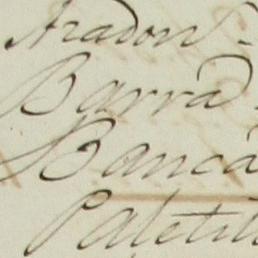 Aradon
Barrad
Banca
Paletill